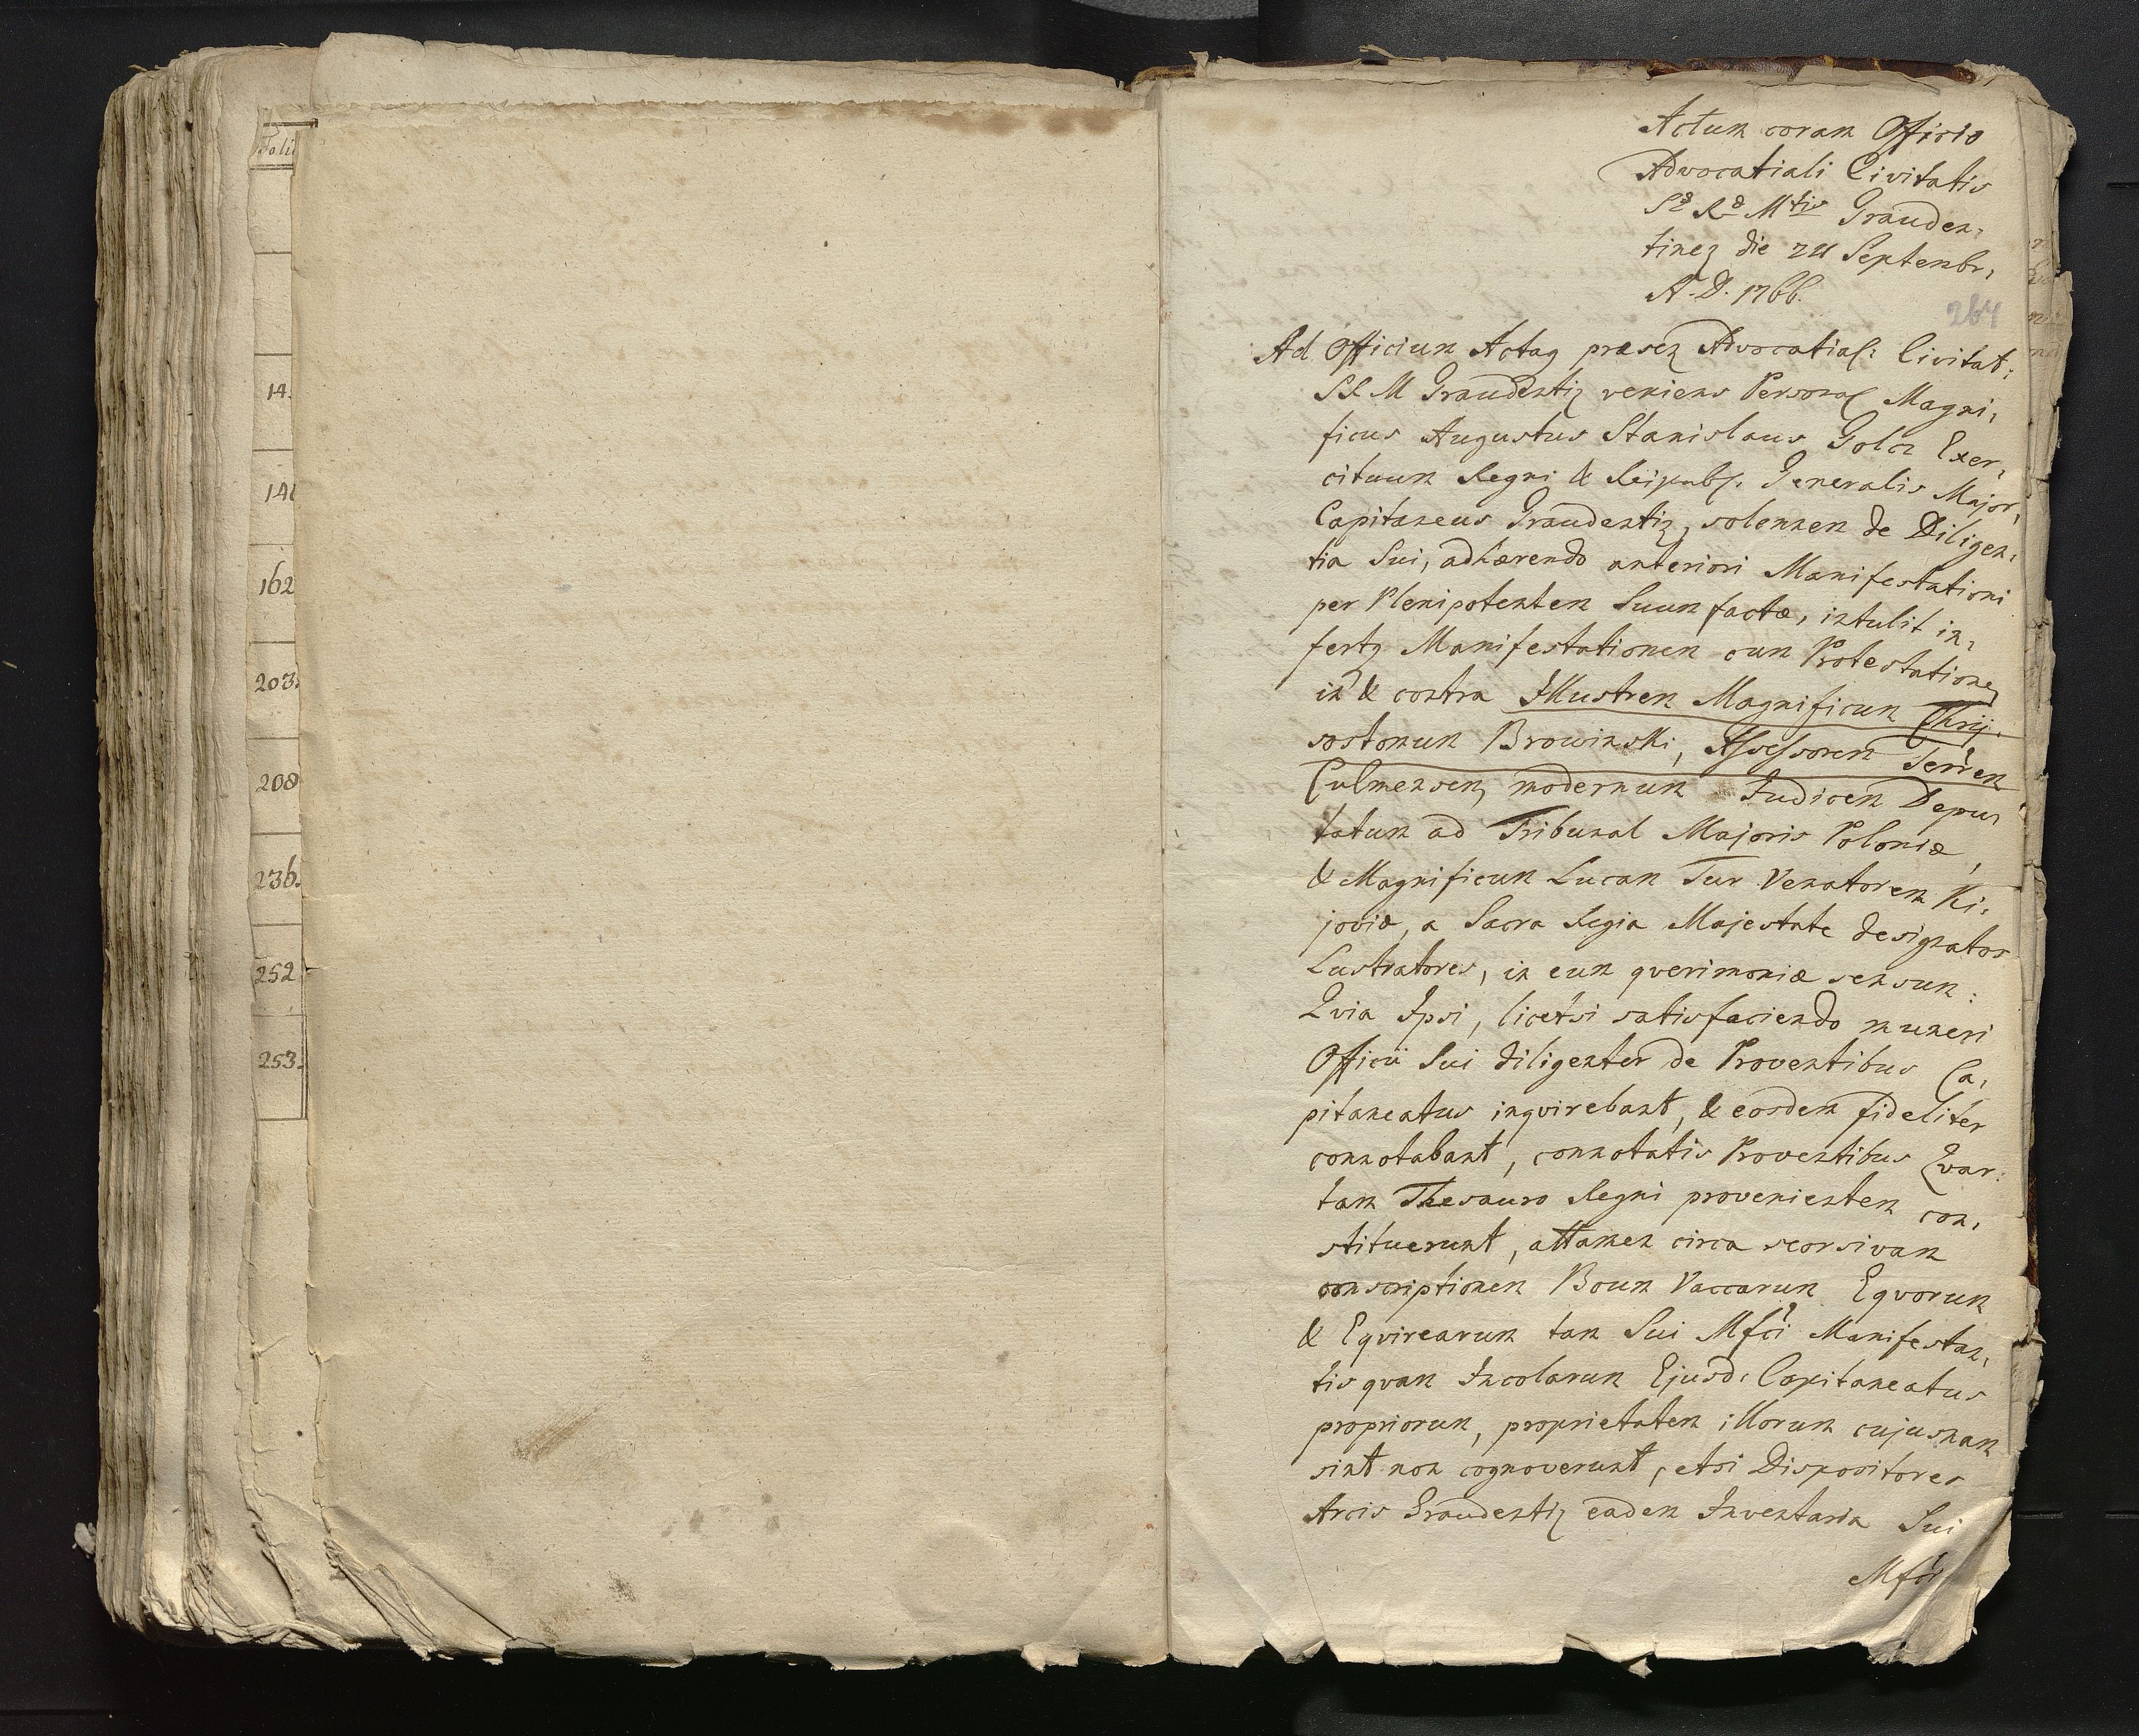 Folio
14.
141
162
203.
208
236.
252
253.
Actum coram Officio
Advocatiali Civitatis
Sæ Ræ Mtis Grauden,
tinez die 24 Septembr,
A. D. 1766.
264
Ad Officium Actaq præsen Advocatial: Civitat:
SRM Graudentiz veniens Personal Magni,
ficus Augustus Stanislaus Golcz Exer,
cituum Regni & Reipubl. Generalis Major,
Capitaneus Graudentiz, solemnem de Diligen,
tia Sui, adhærendo anteriori Manifestationi
per Plenipotentem Suum factæ, intulit in,
fertq Manifestationem cum Protestatione,
in & contra Illustrem Magnificum Chrij,
sostomum Browinski, Assessorem Terren
Culmensem, modernum Judicem Depu,
tatum ad Tribunal Majoris Poloniæ,
& Magnificum Lucam Tur Venatorem Ki,
joviæ, a Sacra Regia Majestate designatos
Lustratores, in eum qverimoniæ sensum:
Qvia Ipsi, licetsi satisfaciendo muneri
Officii Sui diligenter de Proventibus Ca,
pitaneatus inqvirebant, & eosdem fideliter
connotabant, connotatis Proventibus Qvar,
tam Thesauro Regni provenientem con,
stituerunt, attamen circa seorsivam
conscriptionem Boum Vaccarum Eqvorum
& Eqvirearum tam Sui Mfci Manifestan,
tis qvam Incolarum Ejusd: Capitaneatus
propriorum, proprietatem illorum cujusnam
sint non cognoverunt, etsi Dispositores
Arcis Graudentiz eadem Inventaria Sui
Mfci